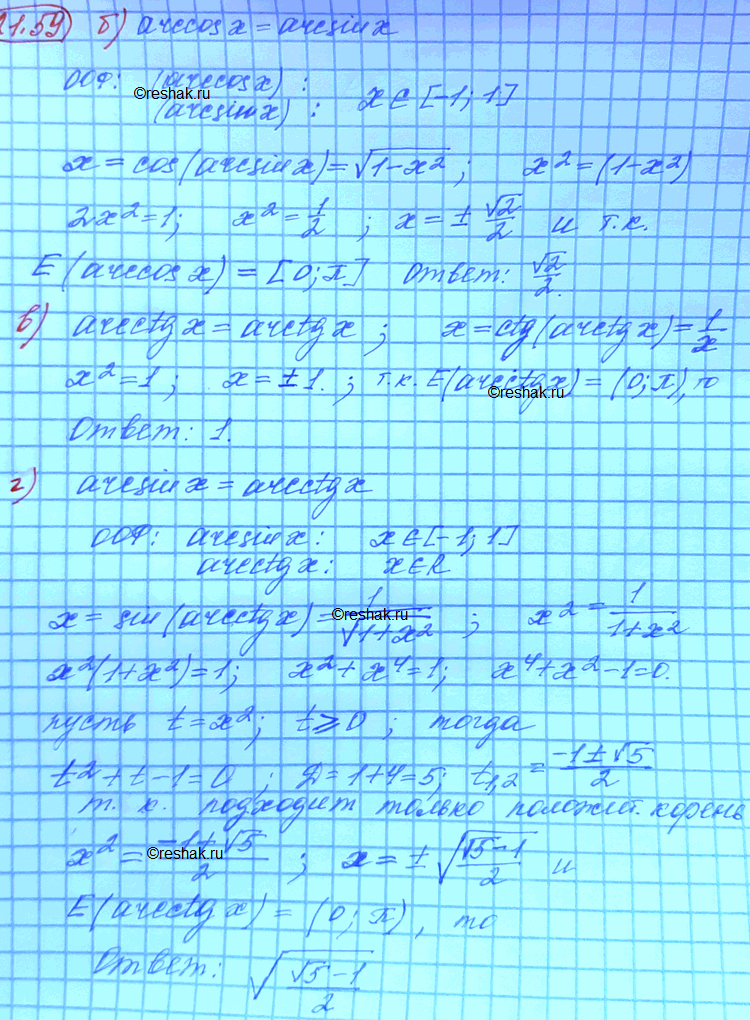 21.59) б) arccos x = arcsin x
ООФ: (arccos x) :
(arcsin x) : x ∈ [-1; 1]
©reshak.ru
x = cos(arcsin x) = √(1-x²) ; x² = (1-x²)
2x² = 1; x² = 1/2 ; x = ± √2/2 и т.к.
E(arccos x) = [0; π] Ответ: √2/2.
в) arcctg x = arctg x ; x = ctg(arctg x) = 1/x
x² = 1 ; x = ± 1. ; т.к. E(arcctg x) = (0; π), то
©reshak.ru
Ответ: 1.
г) arcsin x = arcctg x
ООФ: arcsin x : x ∈ [-1; 1]
arcctg x : x ∈ R
x = sin(arcctg x) = 1/√(1+x²) ; x² = 1/(1+x²)
©reshak.ru
x²(1+x²) = 1; x² + x⁴ = 1; x⁴ + x² - 1 = 0.
пусть t = x² ; t ⩾ 0 ; тогда
t² + t - 1 = 0 ; D = 1+4 = 5; t₁,₂ = (-1 ± √5)/2
т. к. подходит только положит. корень
x² = (-1 + √5)/2 ; x = ± √((√5-1)/2) и
©reshak.ru
E(arcctg x) = (0; π), то
Ответ: √((√5-1)/2)